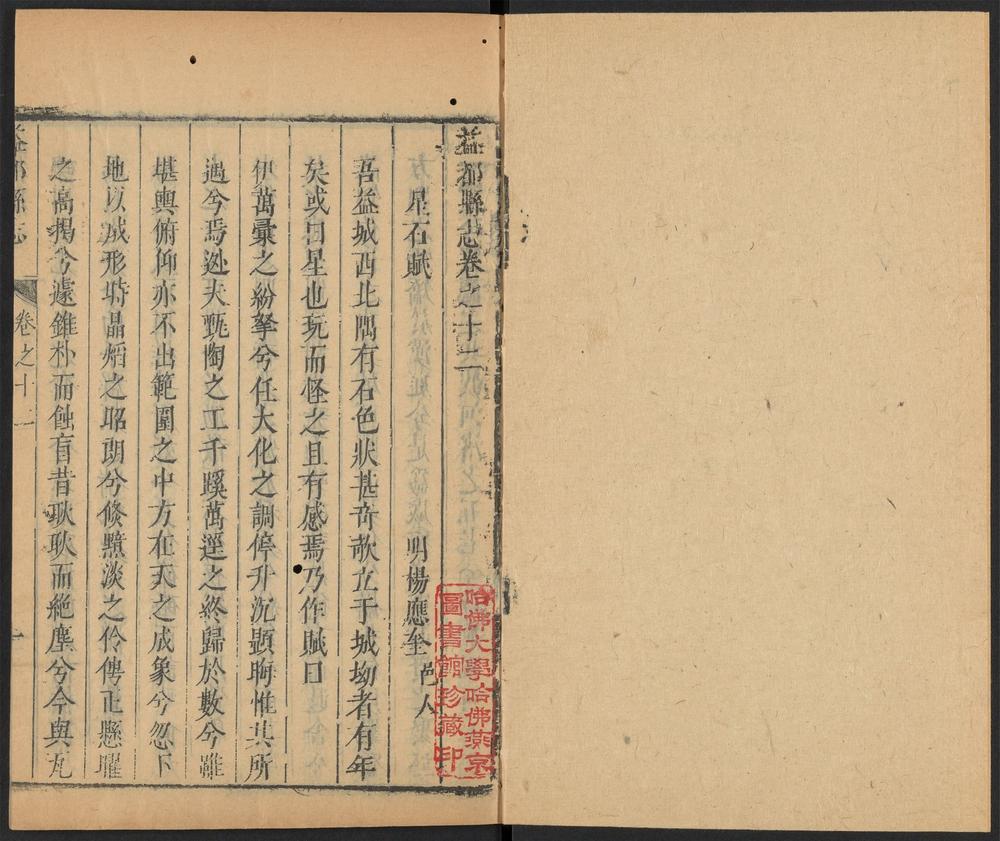 益都縣志卷之十二
星石賦 明楊應奎邑人
吾益城西北隅有石色狀甚奇欹立于城坳者有年
矣或曰星也玩而怪之且有感焉乃作賦曰
伊萬彙之紛拏兮任大化之調停升沉顯晦惟其所
遇兮焉逃大甄陶之工千蹊萬逕之終歸於數兮雖
堪輿俯仰亦不出範圍之中方在天之成象兮忽下
地以成形恃晶熖之昭朗兮倐黯淡之伶俜正懸曜
之高揭兮遽錐朴而蝕盲昔耿耿而絶塵兮今與瓦
益都縣志
卷之十二
一
哈佛大學哈佛燕京
圖書館珍藏印